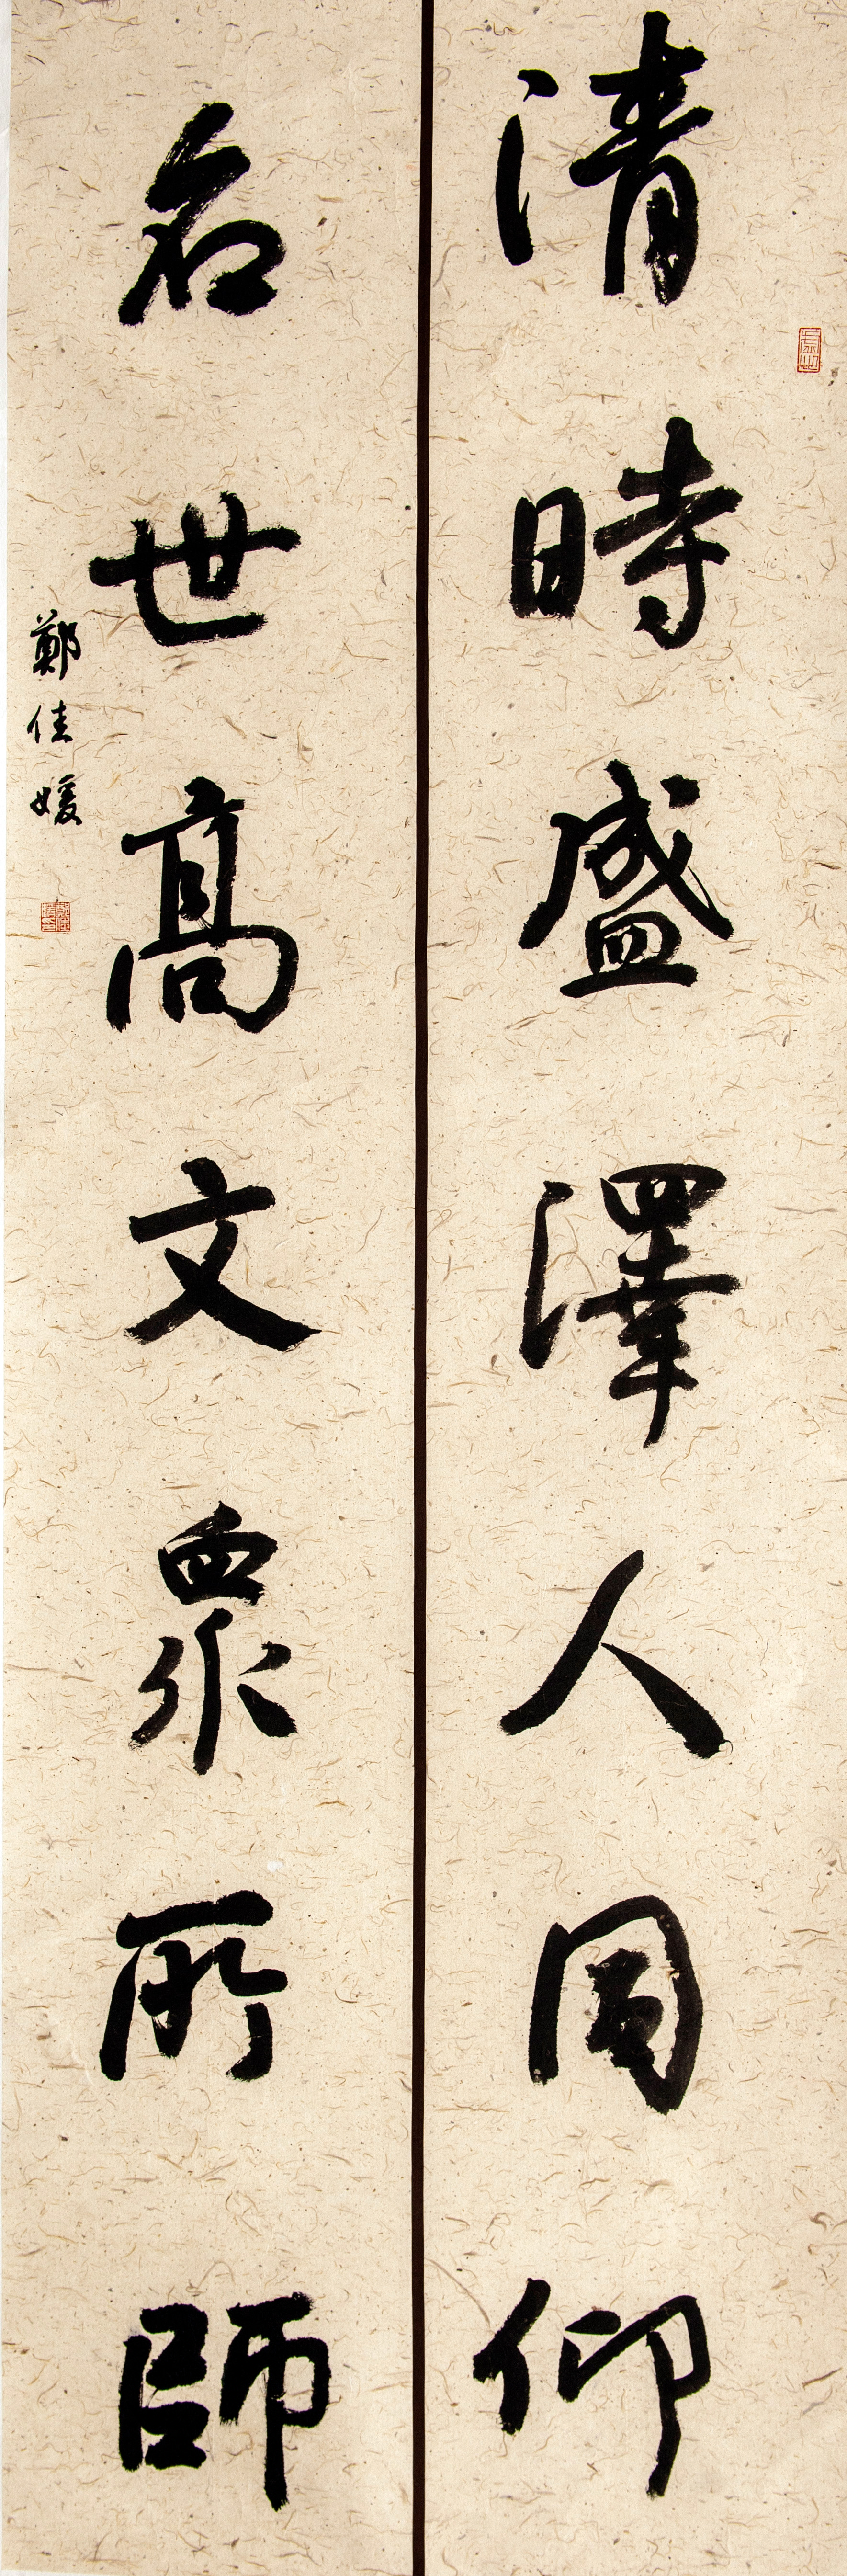 清時盛澤人同仰
名世高文眾所師
鄭佳媛